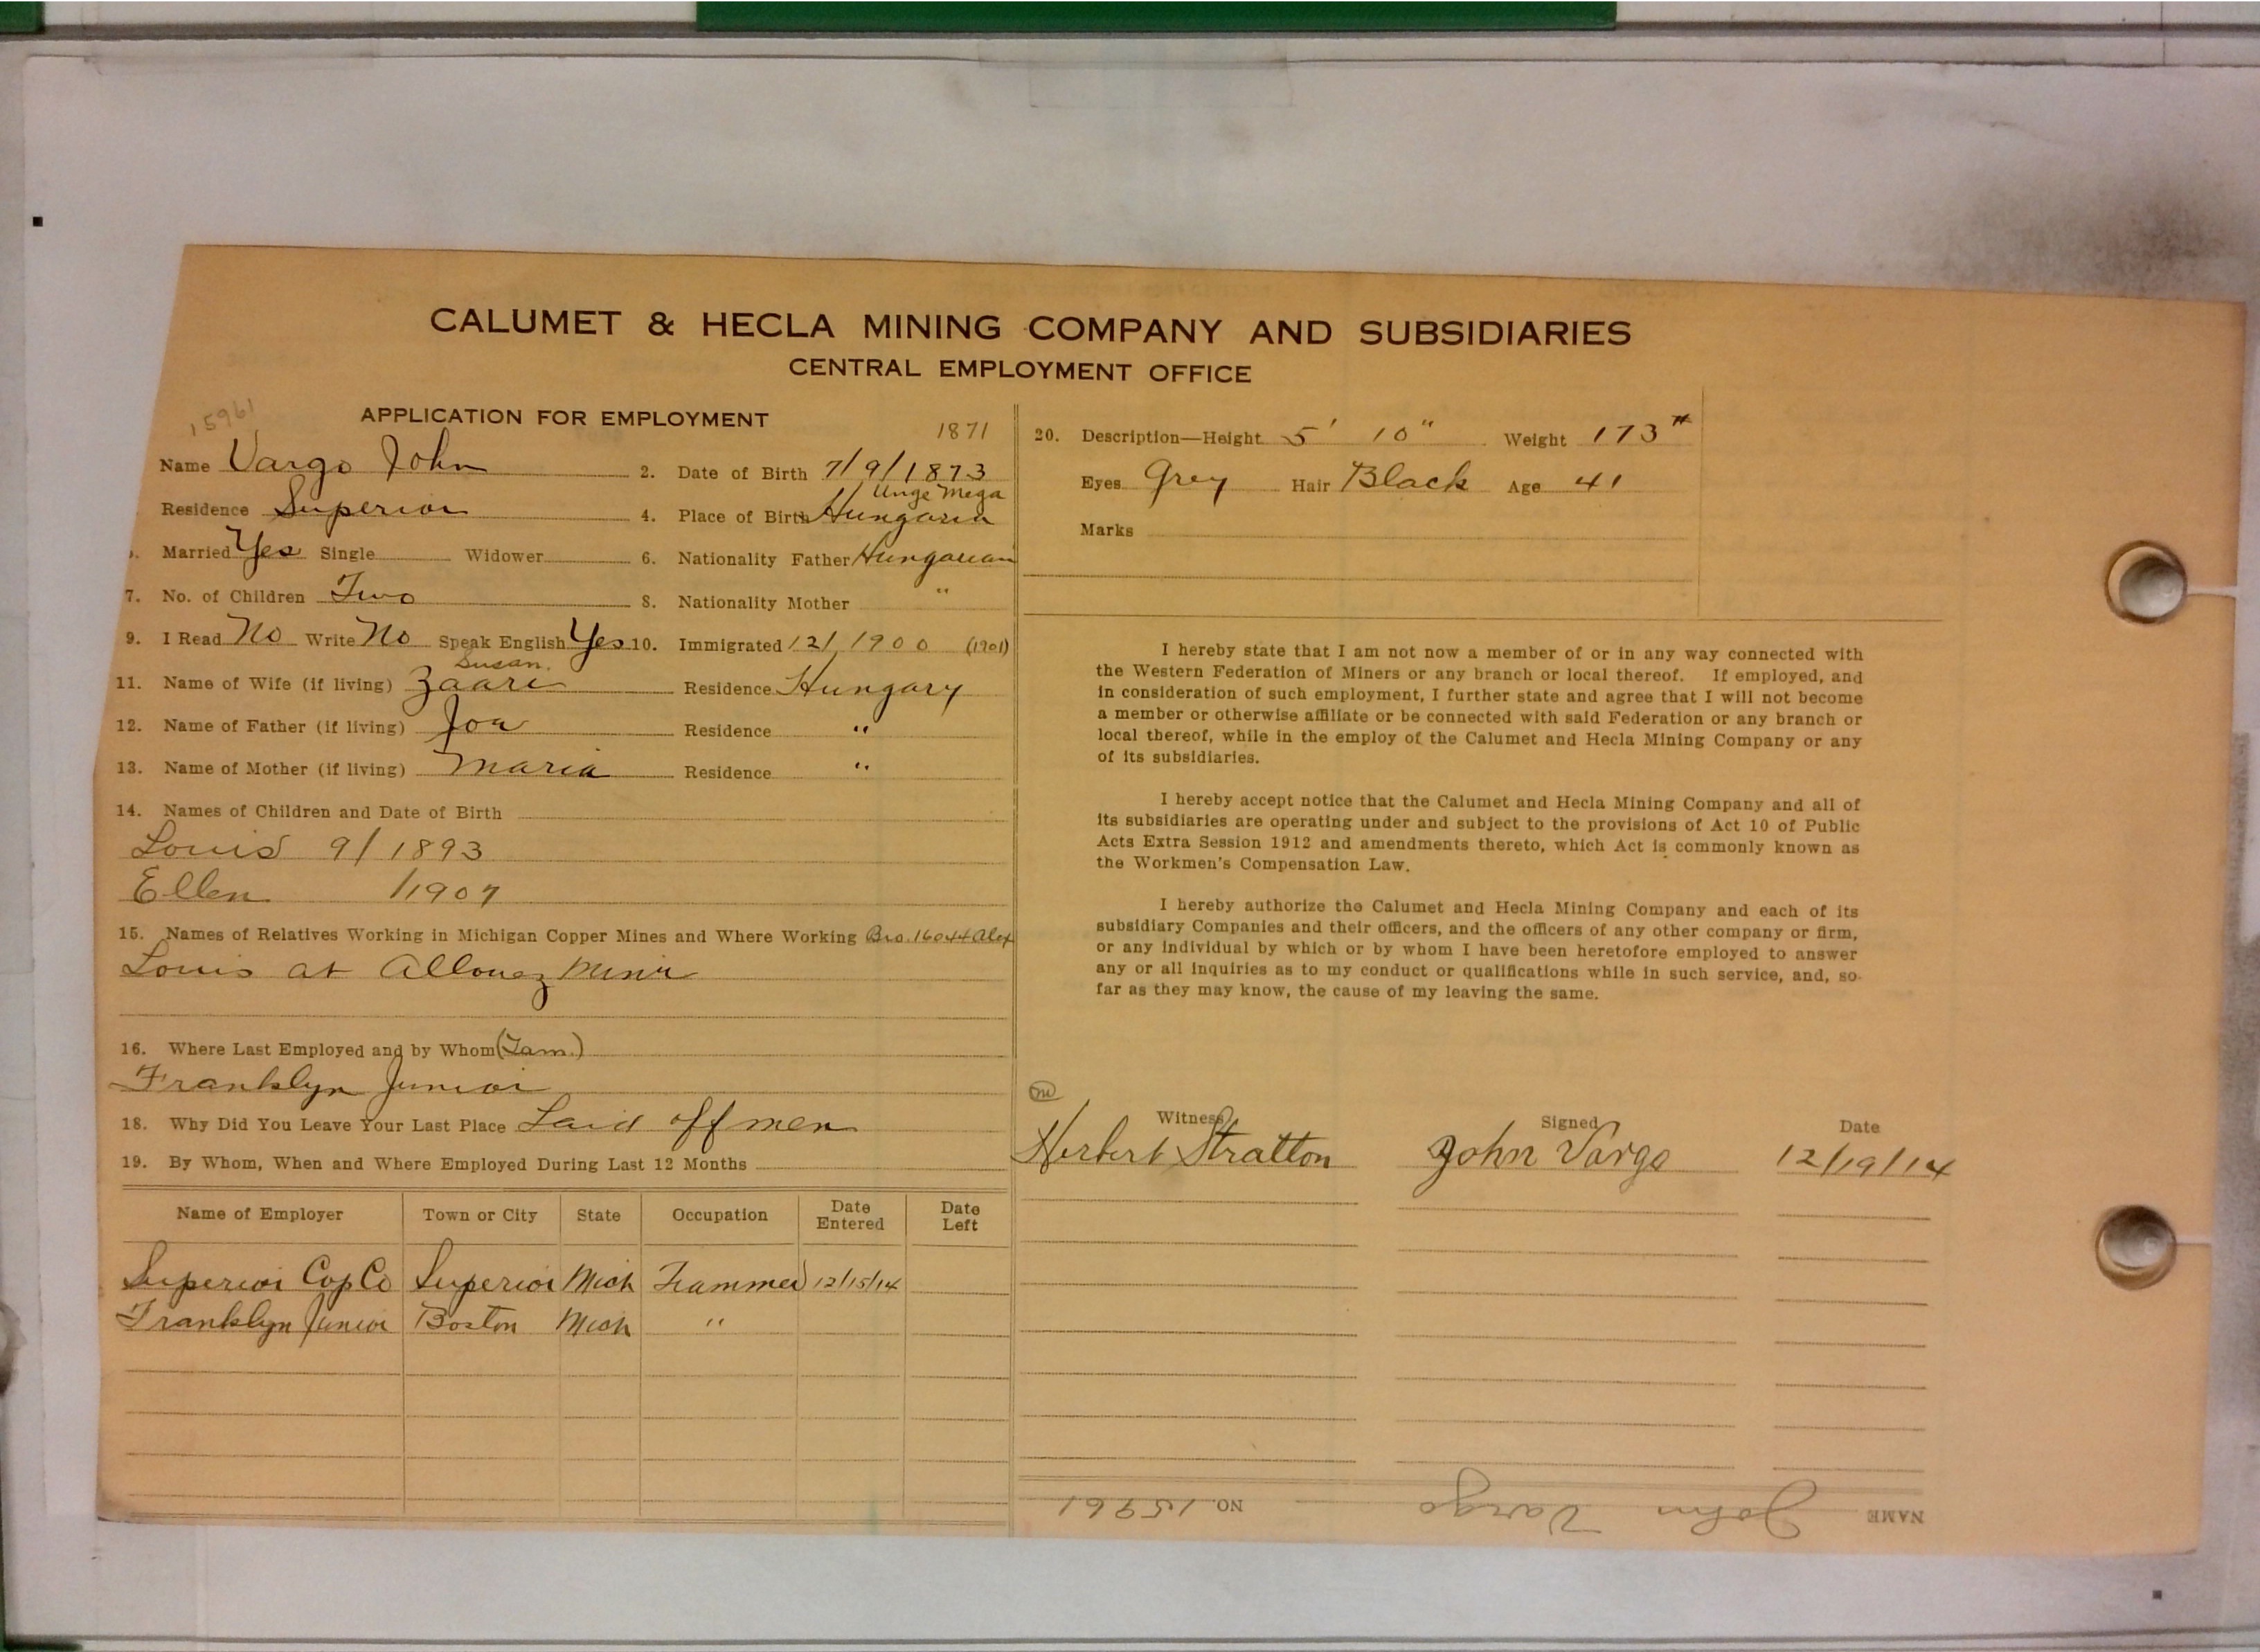 CALUMET & HECLA MINING COMPANY AND SUBSIDIARIES
CENTRAL EMPLOYMENT OFFICE
15961
APPLICATION FOR EMPLOYMENT
1871
Name Vargo John 2. Date of Birth 7/9/1873
Unge Mega
Residence Superior 4. Place of Birth Hungaria
Married Yes Single Widower 6. Nationality Father Hungarian
7. No. of Children Two 8. Nationality Mother "
9. I Read No Write No Speak English Yes 10. Immigrated 12/1900 (1901)
Susan.
11. Name of Wife (if living) Zaari Residence Hungary
12. Name of Father (if living) Joa Residence "
13. Name of Mother (if living) Maria Residence "
14. Names of Children and Date of Birth
Louis 9/1893
Ellen /1907
15. Names of Relatives Working in Michigan Copper Mines and Where Working Bro. 16044 Alex
Louis at Allouez Mine
16. Where Last Employed and by Whom (Tam.)
Franklyn Junior
18. Why Did You Leave Your Last Place Laid off men
19. By Whom, When and Where Employed During Last 12 Months
Name of Employer Town or City State Occupation Date Entered Date Left
Superior Cop Co Superior Mich Trammer 12/15/14
Franklyn Junior Boston Mich "
20. Description—Height 5' 10" Weight 173#
Eyes Grey Hair Black Age 41
Marks
I hereby state that I am not now a member of or in any way connected with
the Western Federation of Miners or any branch or local thereof. If employed, and
in consideration of such employment, I further state and agree that I will not become
a member or otherwise affiliate or be connected with said Federation or any branch or
local thereof, while in the employ of the Calumet and Hecla Mining Company or any
of its subsidiaries.
I hereby accept notice that the Calumet and Hecla Mining Company and all of
its subsidiaries are operating under and subject to the provisions of Act 10 of Public
Acts Extra Session 1912 and amendments thereto, which Act is commonly known as
the Workmen's Compensation Law.
I hereby authorize the Calumet and Hecla Mining Company and each of its
subsidiary Companies and their officers, and the officers of any other company or firm,
or any individual by which or by whom I have been heretofore employed to answer
any or all inquiries as to my conduct or qualifications while in such service, and, so
far as they may know, the cause of my leaving the same.
Witness Signed Date
Herbert Stratton John Vargo 12/19/14
NAME John Vargo NO. 15961